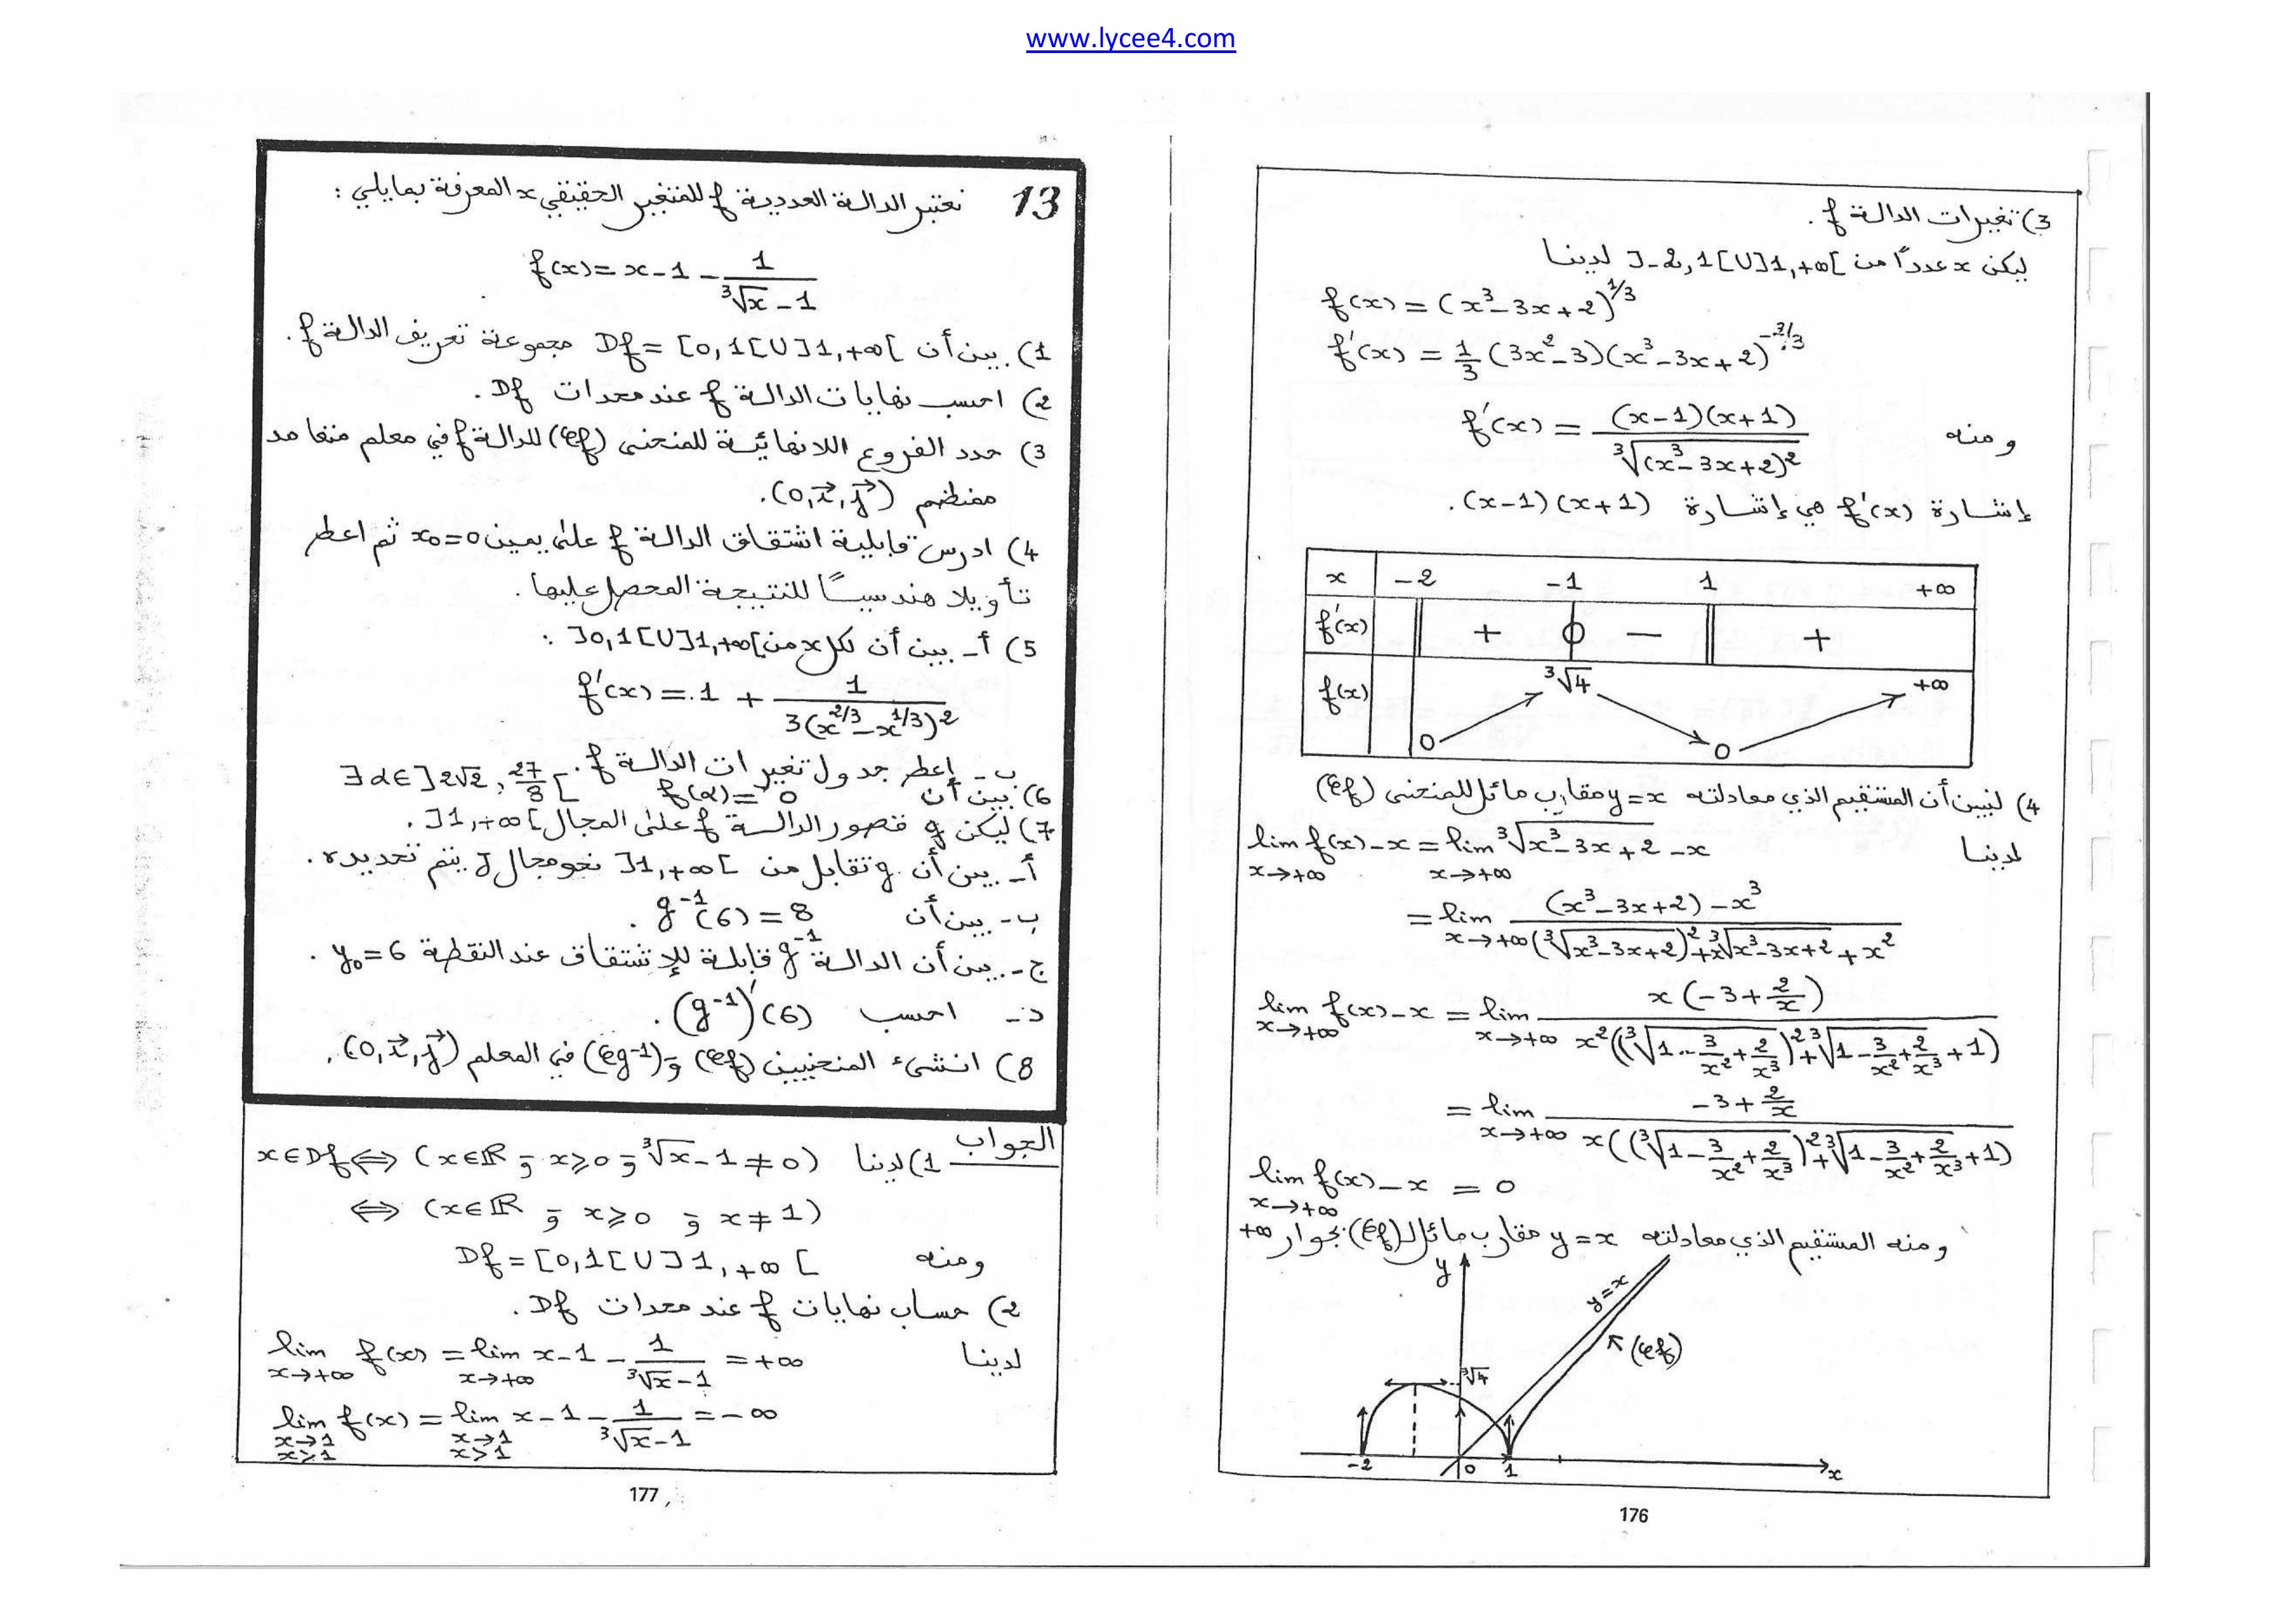 www.lycee4.com
3) تغييرات الدالة f.
ليكن x عددًا من ]-2,1[U]1,+∞[ لدينا
f(x) = (x³-3x+2)^1/3
f'(x) = 1/3 (3x²-3)(x³-3x+2)^-2/3
ومنه f'(x) = (x-1)(x+1) / ³√(x³-3x+2)²
إشارة f'(x) هي إشارة (x-1)(x+1).
x -2 -1 1 +∞
f'(x) + 0 - +
f(x) 0 ³√4 0 +∞
4) لنبين أن المستقيم الذي معادلته y=x مقارب مائل للمنحنى (Cf)
لدينا lim f(x)-x = lim ³√x³-3x+2 -x
x→+∞ x→+∞
= lim x→+∞ (x³-3x+2)-x³ / (³√x³-3x+2)²+x³√x³-3x+2 + x²
lim x→+∞ f(x)-x = lim x→+∞ x(-3+2/x) / x²((³√1-3/x²+2/x³)²+³√1-3/x²+2/x³+1)
= lim x→+∞ -3+2/x / x((³√1-3/x²+2/x³)²+³√1-3/x²+2/x³+1)
lim f(x)-x = 0
x→+∞
ومنه المستقيم الذي معادلته y=x مقارب مائل لـ(Cf) بجوار +∞
y
y=x
(Cf)
³√4
-2 0 1 x
176
13 نعتبر الدالة العددية f للمتغير الحقيقي x المعرفة بمايلي:
f(x)=x-1- 1/(³√x-1)
1) بين أن Df=[0,1[U]1,+∞[ مجموعة تعريف الدالة f.
2) احسب نهايات الدالة f عند محدات Df.
3) حدد الفروع اللانهائية للمنحنى (Cf) للدالة f في معلم متعامد
ممنظم (0,i⃗,j⃗).
4) ادرس قابلية اشتقاق الدالة f على يمين x₀=0 ثم اعط
تأويلا هندسيًا للنتيجة المحصل عليها.
5) أ- بين أن لكل x من ]0,1[U]1,+∞[ :
f'(x)=1 + 1/3(x^2/3-x^1/3)²
ب- إعط جدول تغيرات الدالة f.
6) بين أن ∃α∈]2√2, 27/8[ f(α)=0
7) ليكن g قصور الدالة f على المجال ]1,+∞[.
أ- بين أن g تقابل من ]1,+∞[ نحو مجال J يتم تحديده.
ب- بين أن g⁻¹(6)=8.
ج- بين أن الدالة g⁻¹ قابلة للإشتقاق عند النقطة y₀=6.
د- احسب (g⁻¹)'(6).
8) انشىء المنحنيين (Cf) و (Cg⁻¹) في المعلم (0,i⃗,j⃗).
الجواب
1) لدينا x∈Df⟺(x∈ℝ و x⩾0 و ³√x-1≠0)
⟺ (x∈ℝ و x⩾0 و x≠1)
ومنه Df=[0,1[U]1,+∞[
2) حساب نهايات f عند محدات Df.
لدينا lim f(x) = lim x-1- 1/(³√x-1) = +∞
x→+∞ x→+∞
lim f(x) = lim x-1- 1/(³√x-1) = -∞
x→1 x→1
x>1 x>1
177